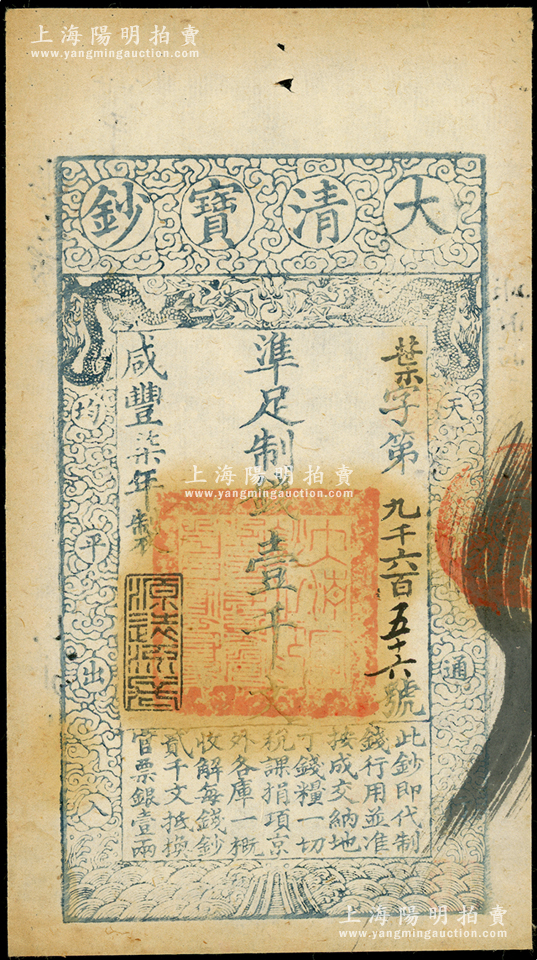 上海陽明拍賣
www.yangmingauction.com
大清寶鈔
天下通行
均平出入
字第九千六百五十六號
準足制錢壹千文
咸豐柒年製
上海陽明拍賣
www.yangmingauction.com
源遠流長
此鈔即代制
錢行用並准
按成交納地
丁錢糧一切
稅課捐項京
外各庫一概
收解每錢鈔
貳千文抵換
官票銀壹兩
上海陽明拍賣
www.yangmingauction.com